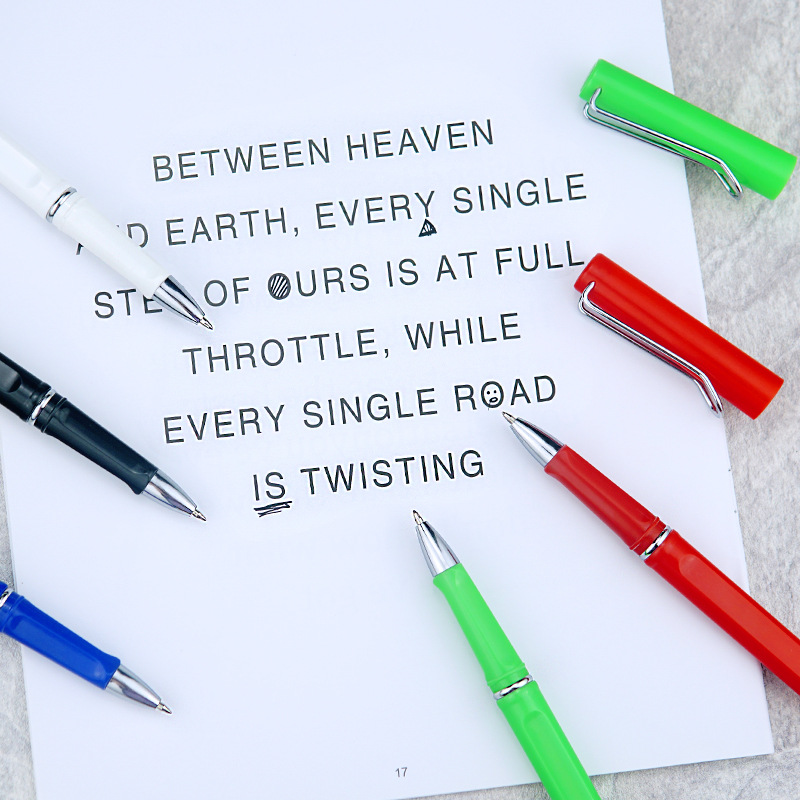 BETWEEN HEAVEN
AND EARTH, EVERY SINGLE
STEP OF OURS IS AT FULL
THROTTLE, WHILE
EVERY SINGLE ROAD
IS TWISTING
17